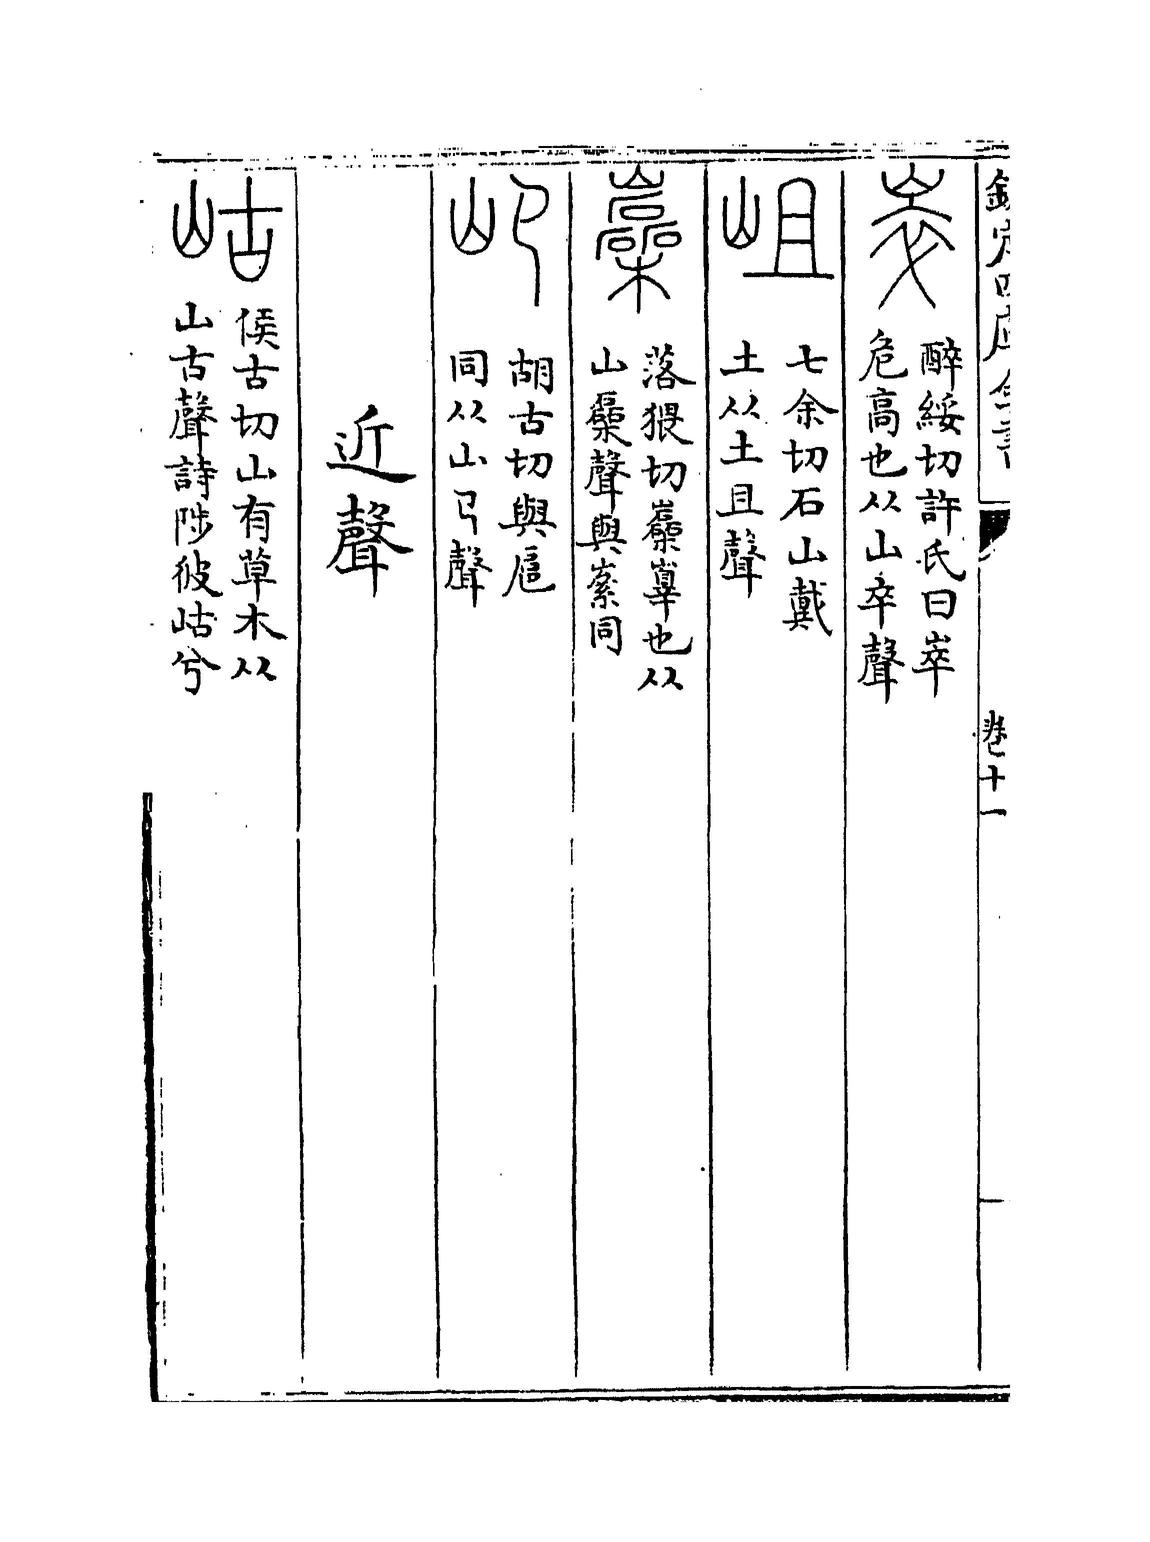 欽定四庫全書
卷十一
崒
醉綏切許氏曰崒
危高也从山卒聲
岨
七余切石山戴
土从土且聲
落猥切也从
山櫐聲與同
胡古切與扈
同从山聲
近聲
岵
侯古切山有草木从
山古聲詩陟彼岵兮